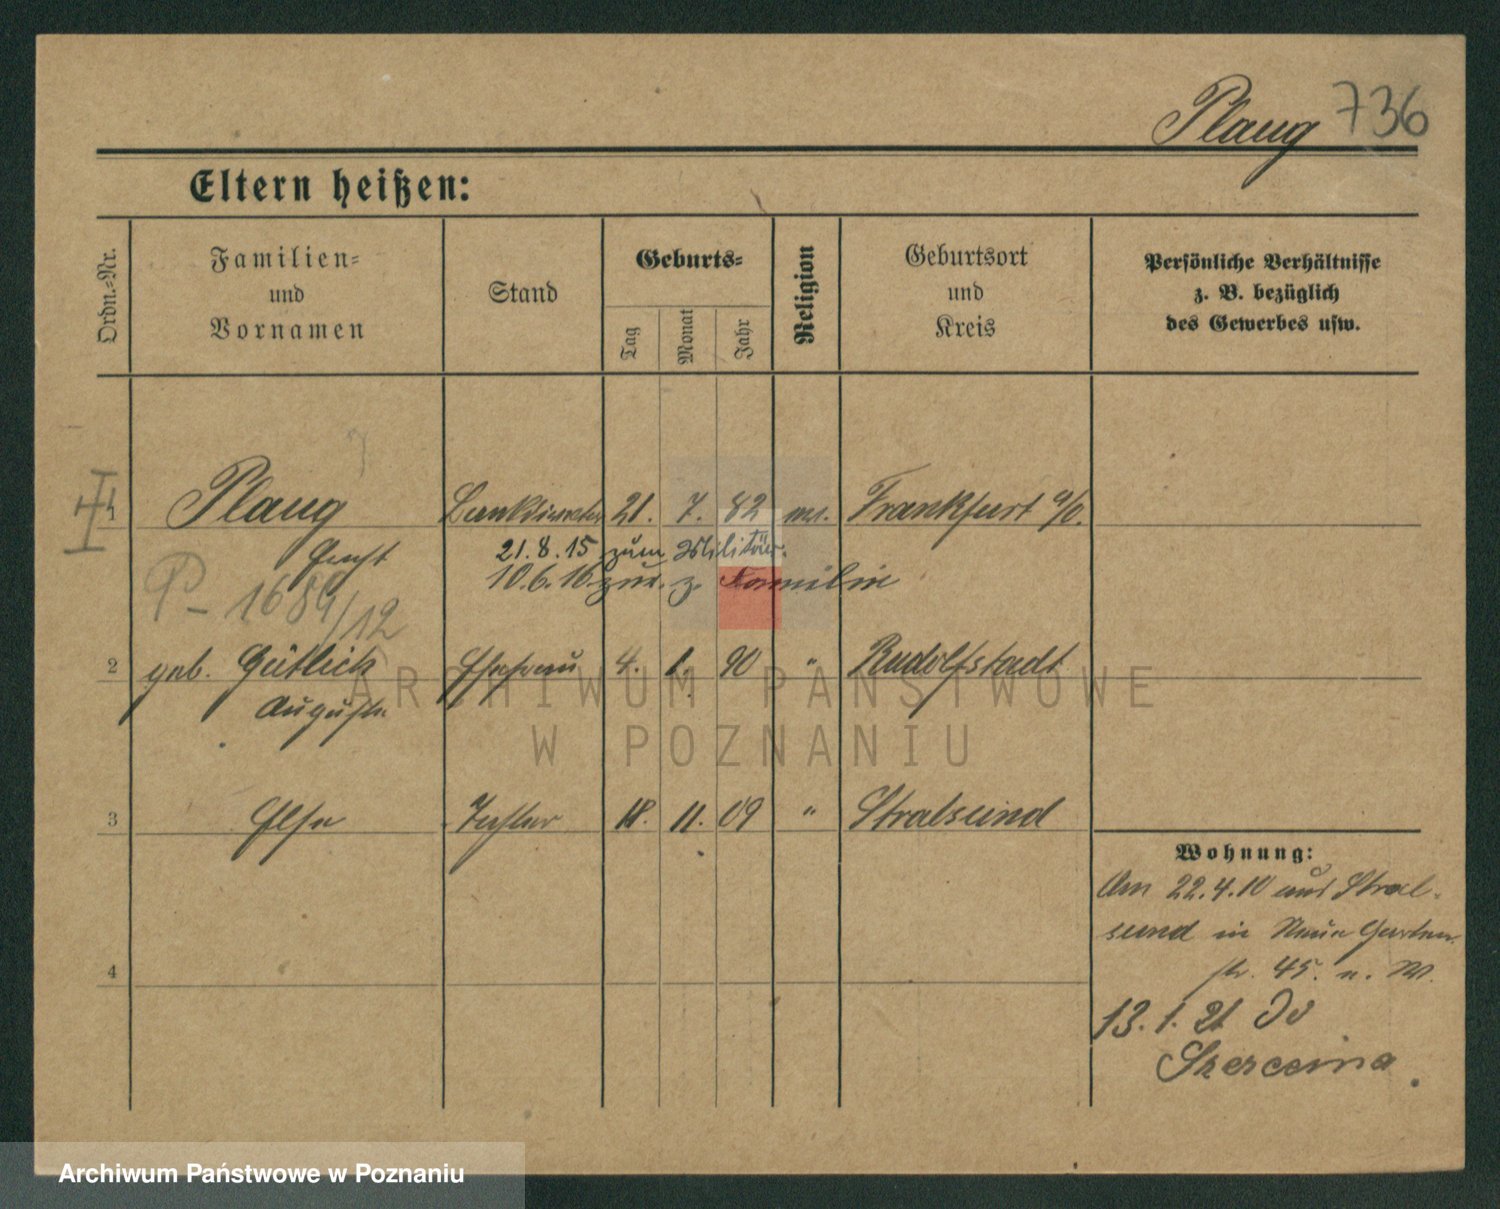 Plaug 736
Eltern heißen:
Ordn.-Nr.
Familien-
und
Vornamen
Stand
Geburts-
Tag
Monat
Jahr
Religion
Geburtsort
und
Kreis
Persönliche Verhältnisse
z. B. bezüglich
des Gewerbes usw.
1 Plaug 21. 7. 82 Frankfurt a/O.
Ernst
21.8.15 zum Militär.
10.6.16 zur. z. Familie
P- 1684/12
2 geb. Gütlich Ehefrau 4. 1. 90 " Rudolfstadt
Auguste
3 Else Tochter 18. 11. 09 " Stralsund
4
Wohnung:
Am 22.4.10 aus Stral-
sund in Neue Garten
str. 45. n. W.
13. 1. 21
ARCHIWUM PAŃSTWOWE
W POZNANIU
Archiwum Państwowe w Poznaniu